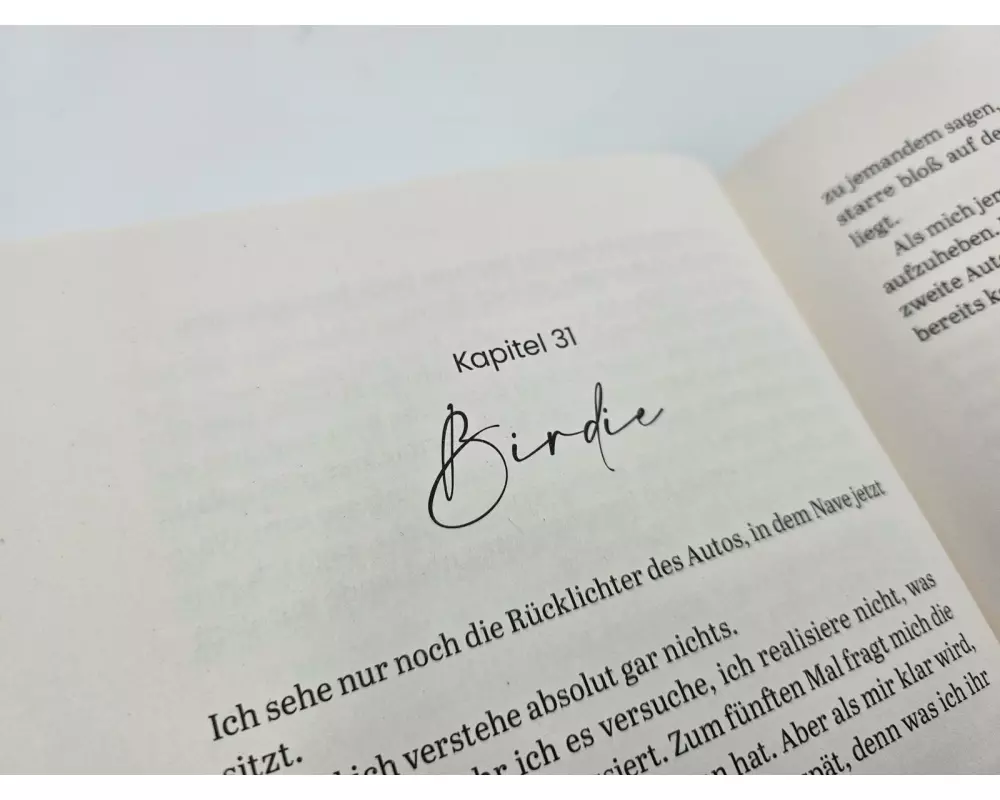 Kapitel 31
Birdie
Ich sehe nur noch die Rücklichter des Autos, in dem Nave jetzt
sitzt.
ich verstehe absolut gar nichts.
ich es versuche, ich realisiere nicht, was
Zum fünften Mal fragt mich die
hat. Aber als mir klar wird,
denn was ich ihr
zu jemandem sagen,
starre bloß auf
liegt.
Als mich
aufzuheben.
zweite
bereits